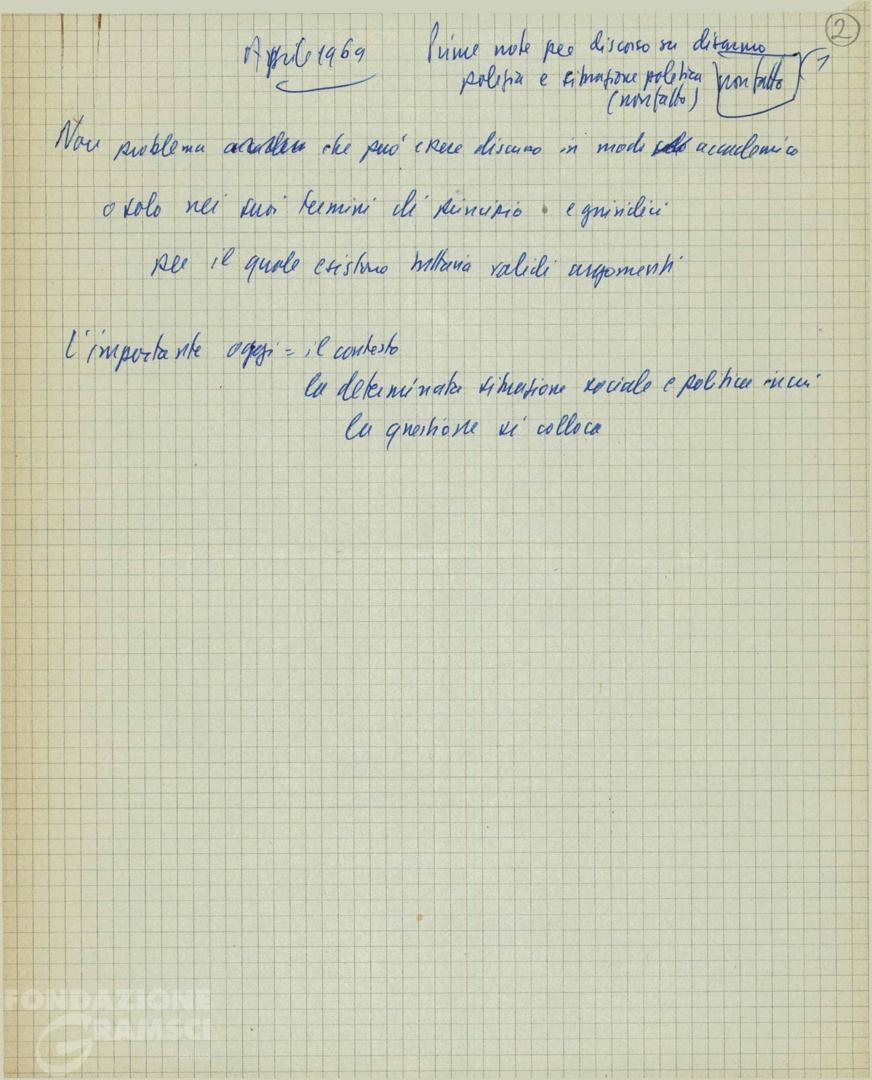 2
Aprile 1969
Prime note per discorso su disarmo
polizia e situazione politica
(non fatto)
non fatto
Non problema che può essere discusso in modo accademico
o solo nei suoi termini di principio e giuridici
per il quale esistono tuttavia validi argomenti
L'importante oggi = il contesto
la determinata situazione sociale e politica in cui
la questione si colloca
FONDAZIONE
GRAMSCI